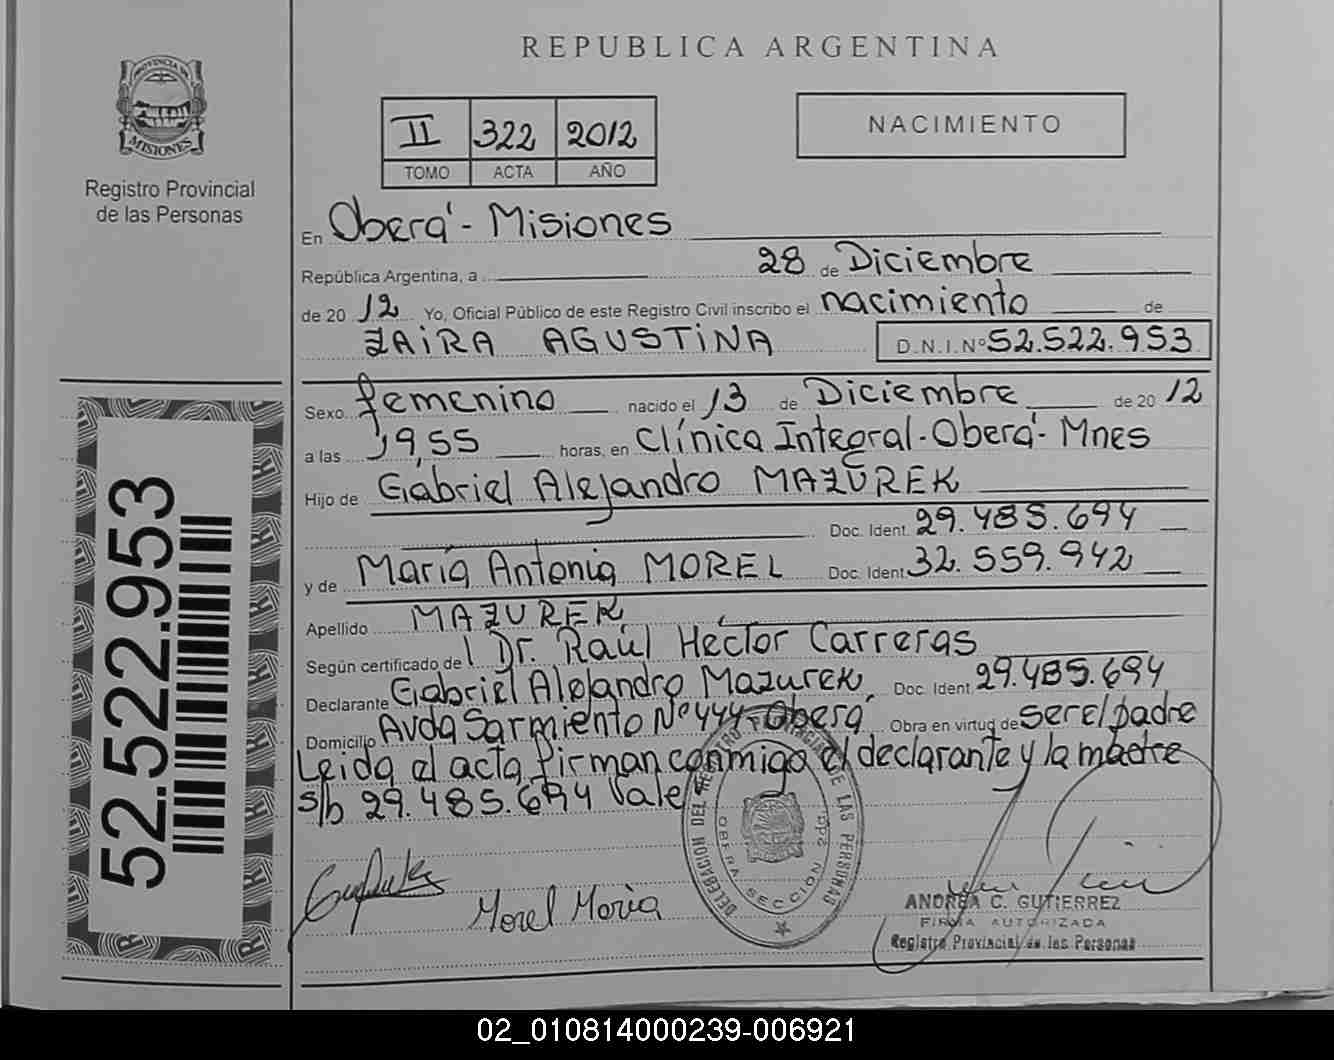 REPUBLICA ARGENTINA
PROVINCIA DE
MISIONES
Registro Provincial
de las Personas
II 322 2012
TOMO ACTA AÑO
NACIMIENTO
En Oberá - Misiones
República Argentina, a 28 de Diciembre
de 20 12 Yo, Oficial Público de este Registro Civil inscribo el nacimiento de
ZAIRA AGUSTINA D.N.I.Nº 52.522.953
Sexo femenino nacido el 13 de Diciembre de 20 12
a las 19,55 horas, en Clínica Integral - Oberá - Mnes
Hijo de Gabriel Alejandro MAZUREK
Doc. Ident. 29.485.694
y de María Antonia MOREL Doc. Ident. 32.559.942
Apellido MAZUREK
Según certificado de Dr. Raúl Hector Carreras
Declarante Gabriel Alejandro Mazurek Doc. Ident. 29.485.694
Domicilio Avda Sarmiento Nº 444 - Oberá Obra en virtud de ser el padre
Leida el acta, firman conmigo el declarante y la madre
s/b 29.485.694 Vale
52.522.953
DELEGACION DEL REGISTRO PROVINCIAL DE LAS PERSONAS
OBERA SECCION 2da.
Morel Maria
ANDREA C. GUTIERREZ
FIRMA AUTORIZADA
Registro Provincial de las Personas
02_010814000239-006921